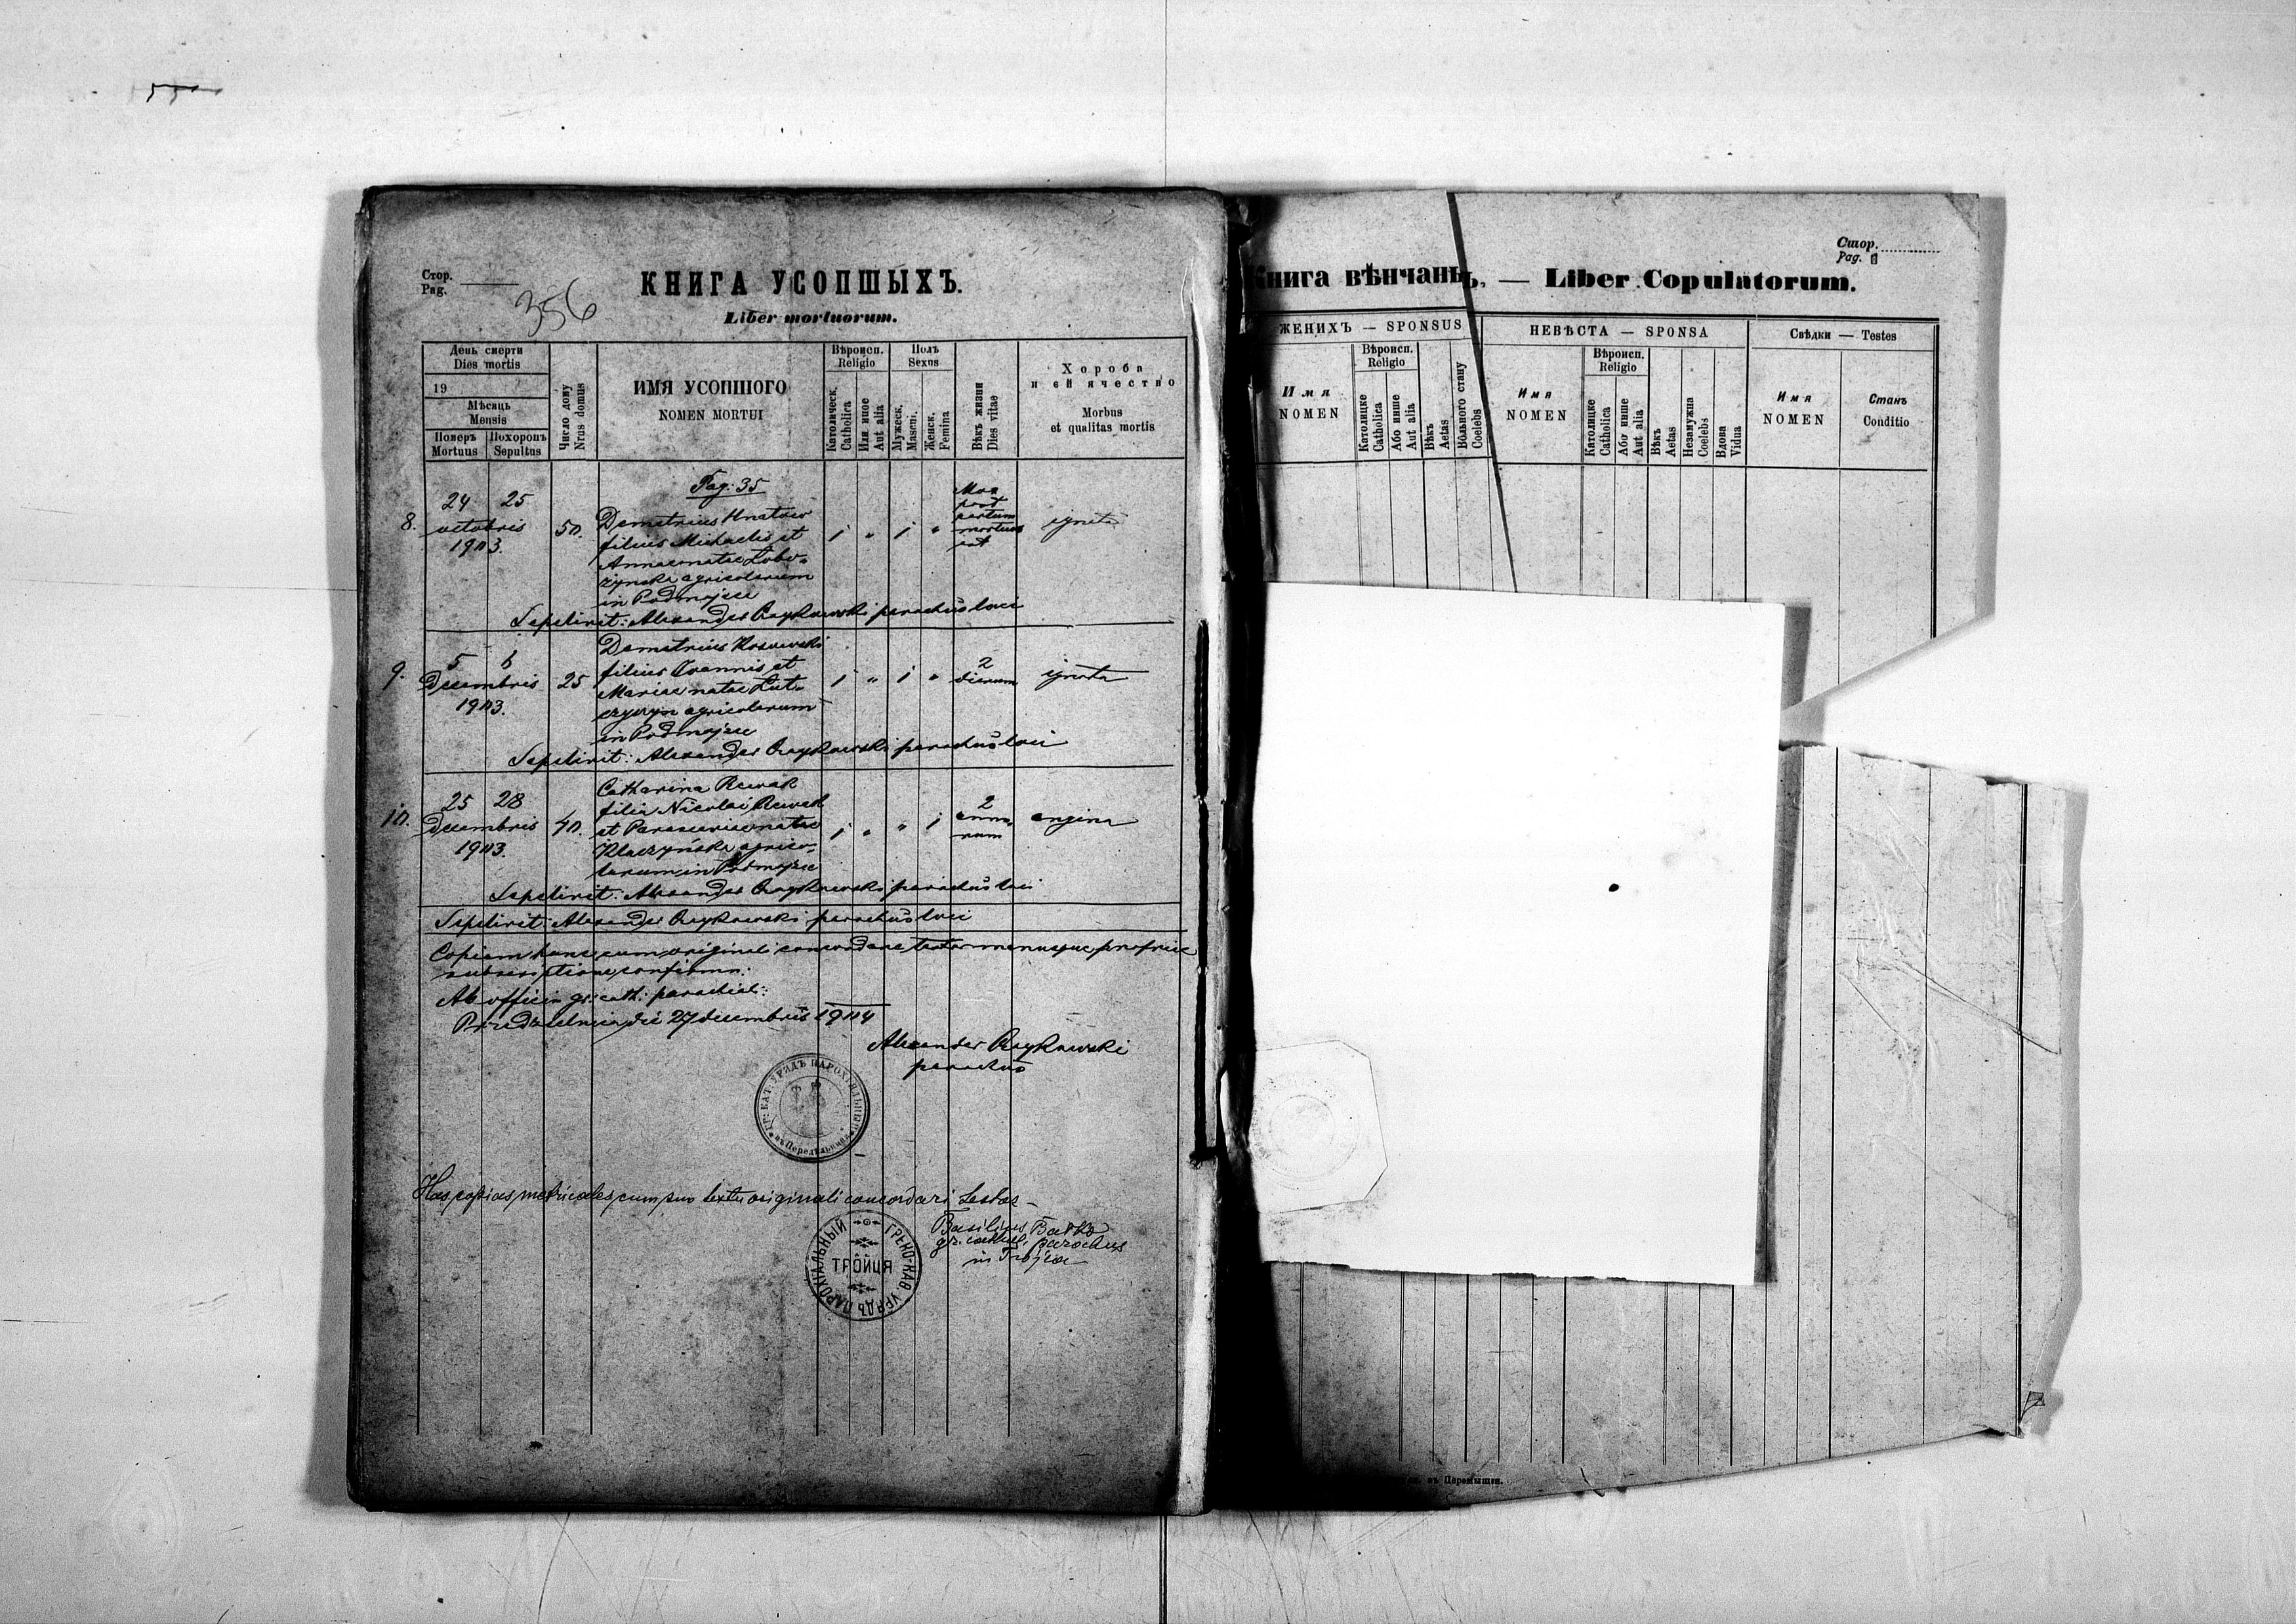 Стор.
Pag.
356
КНИГА УСОПШЫХЪ.
Liber mortuorum.
День смерти
Dies mortis
19
Мѣсяць
Mensis
Померъ
Mortuus
Похоронъ
Sepultus
Число дому
Nrus domus
ИМЯ УСОПШОГО
NOMEN MORTUI
Вѣроисп.
Religio
Католическ.
Catholica
Или иное
Aut alia
Полъ
Sexus
Мужеск.
Mascul.
Женск.
Femina
Вѣкъ жизни
Dies vitae
Хороба
и еи ячество
Morbus
et qualitas mortis
Pag: 35
8.
24 25
octobris
1903.
50.
Demetrius Hnatow
filius Michaelis et
Annae natae Lobo-
zynska agricolarum
in Podmojsce
Mox
post
partum
mortuus
est
ignota
Sepelivit: Alexander Czajkowski parochus loci
9.
5 6
Decembris
1903.
25
Demetrius
filius Joannis et
Mariae natae
agricolarum
in Podmojsce
2
dierum
ignota
Sepelivit: Alexander Czajkowski parochus loci
10.
25 28
Decembris
1903.
40.
Catharina Rewak
filia Nicolai Rewak
et Parasceviae natae
Kluczyńska agrico-
larum in Podmojsce
2
anno-
rum
angina
Sepelivit: Alexander Czajkowski parochus loci
Sepelivit: Alexander Czajkowski parochus loci
Copiam hanc cum originali concordare testor manuque propria
subscriptione confirmo.
Ab officio gr: cath: parochiali:
Przedzielnica die 27 decembris 1904
Alexander Czajkowski
parochus
ГР: КАТ: УРЯДЪ ПАРОХІЯЛЬНЫЙ
Has copias metricales cum suo textu originali concordari testor
Basilius
gr. cathol. parochus
in Trojca
ГРЕКО-КАѲ. УРЯДЪ ПАРОХІАЛЬНЫЙ
ТРОЙЦЯ
Стор.
Pag.
Книга вѣнчань. — Liber Copulatorum.
ЖЕНИХЪ — SPONSUS
Имя
NOMEN
Вѣроисп.
Religio
Католицке
Catholica
Або инше
Aut alia
Вѣкъ
Aetas
Вольного стану
Coelebs
НЕВѢСТА — SPONSA
Имя
NOMEN
Вѣроисп.
Religio
Католицке
Catholica
Або инше
Aut alia
Вѣкъ
Aetas
Незамужна
Coelebs
Вдова
Vidua
Свѣдки — Testes
Имя
NOMEN
Станъ
Conditio
въ Перемышли.